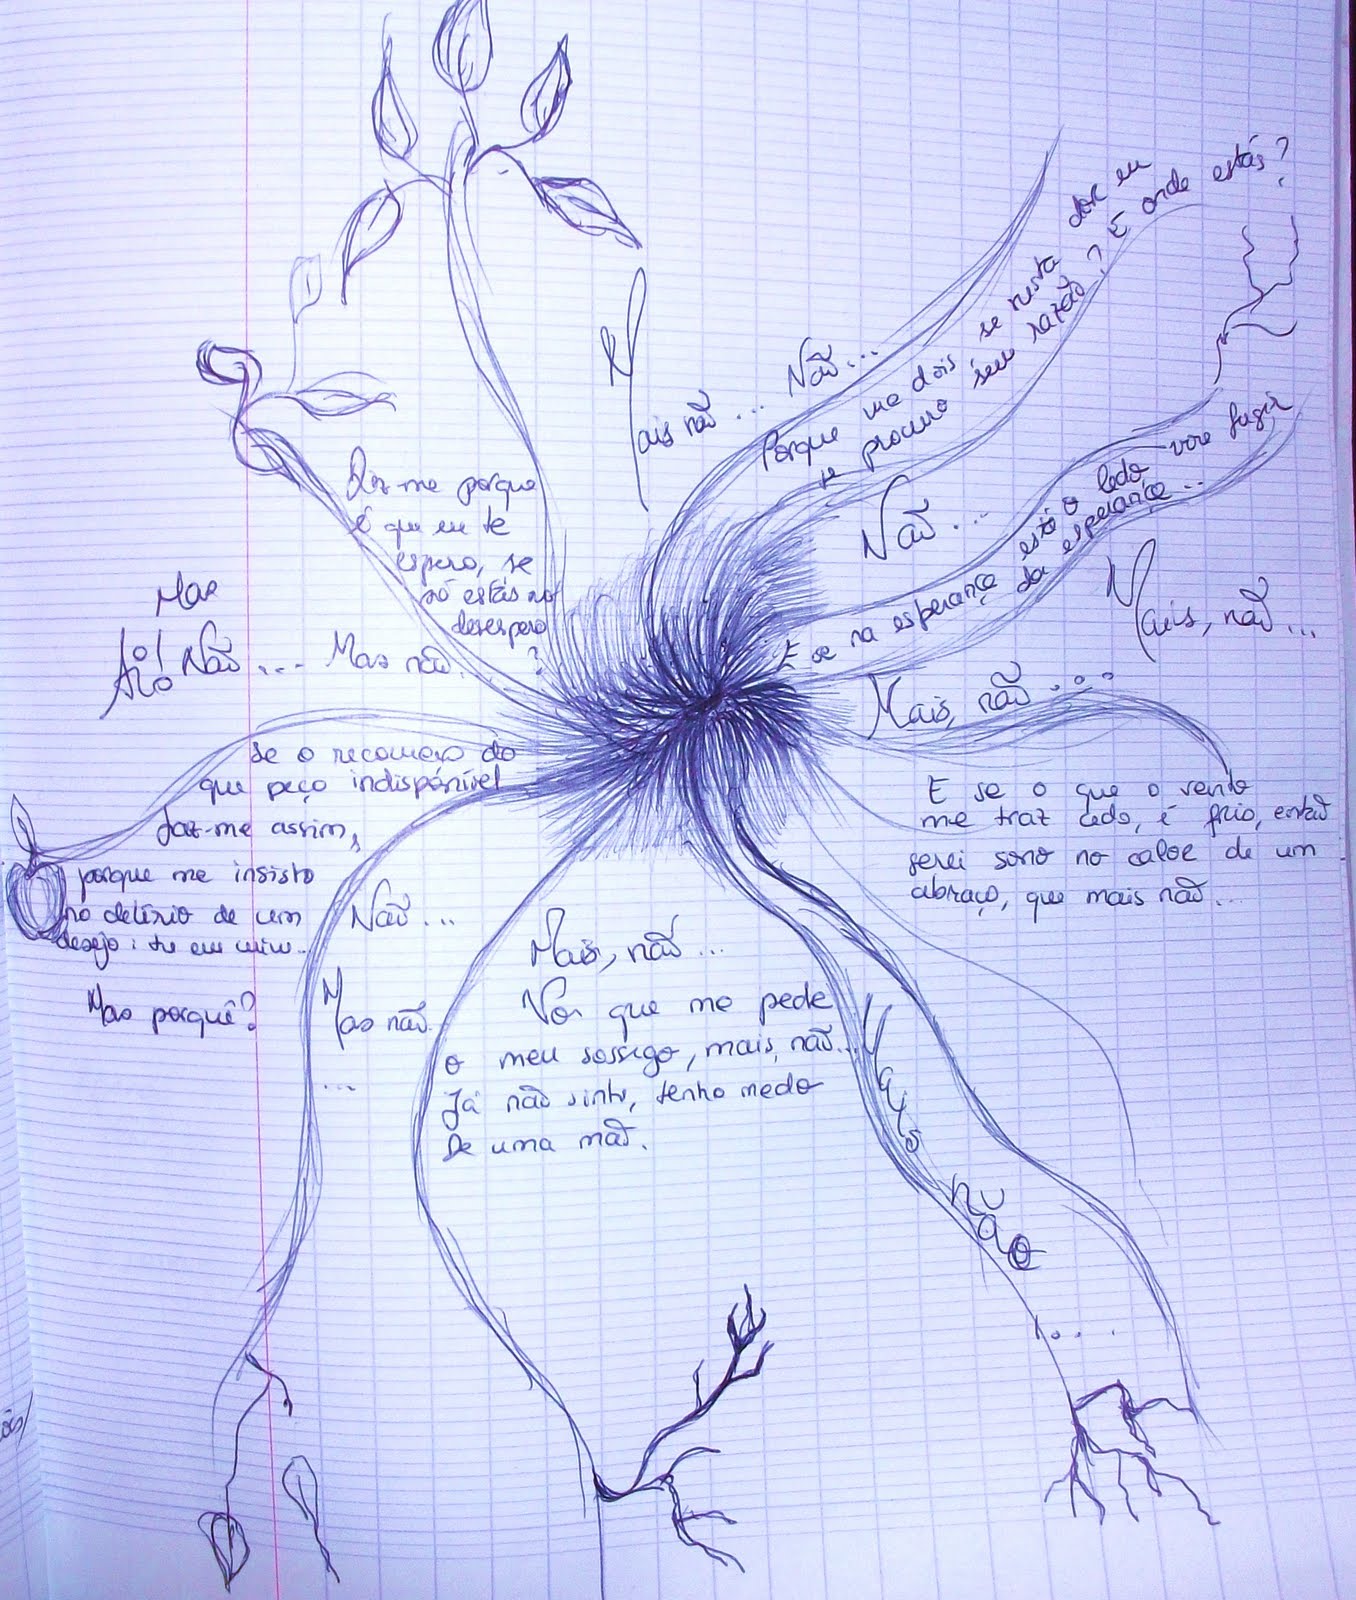 Mais não... Não...
Porque me dois se nesta dor eu
te procuro sem razão? E onde estás?
Não...
Diz-me porque
é que eu te
espero, se
só estás no
desespero
?
E se na esperança está o lado
da esperança...
Mais, não...
Mas
Não... Mas não.
Mais, não...
se o recomeço do
que peço indispónível
faz-me assim,
porque me insisto
no delírio de um
desejo: tu em mim...
Mas porquê?
E se o que o vento
me traz cedo, é frio, então
serei sono no calor de um
abraço, que mais não...
Não...
Mas não.
...
Mais, não...
Voz que me pede
o meu sossego, mais, não...
Já não sinto, tenho medo
De uma mão.
Mais
não
...